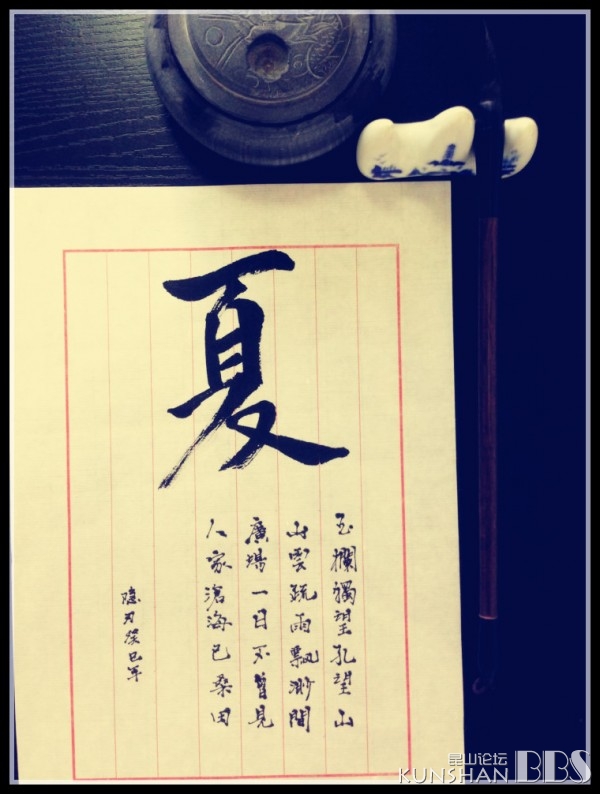 夏
玉欄獨望孔望山
時雲疏雨飄渺間
廣場一日不曾見
人家滄海已桑田
隐刃癸巳年
昆山论坛
KUNSHAN BBS